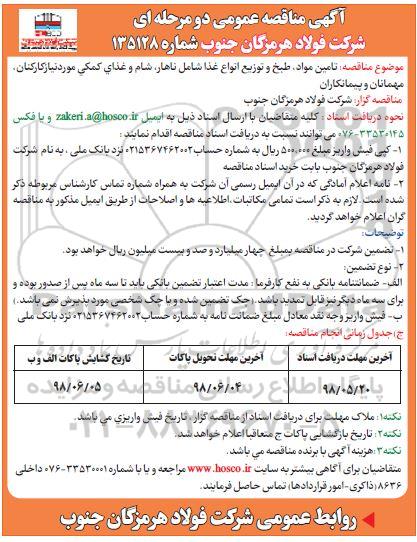 آگهی مناقصه عمومی دو مرحله ای
شرکت فولاد هرمزگان جنوب شماره ۱۳۵۱۲۸
موضوع مناقصه: تامین مواد، طبخ و توزیع انواع غذا شامل ناهار، شام و غذاي کمکي موردنیازکارکنان،
مهمانان و پیمانکاران
مناقصه گزار: شرکت فولاد هرمزگان جنوب
نحوه دریافت اسناد : کلیه متقاضیان با ارسال اسناد ذیل به ایمیل zakeri.a@hosco.ir و یا فکس
۰۷۶-۳۳۵۳۰۱۴۵ می توانند نسبت به دریافت اسناد مناقصه اقدام نمایند :
۱- کپی فیش واریز مبلغ ۵۰۰،۰۰۰ ریال به شماره حساب ۰۲۱۵۳۶۷۴۶۲۰۰۲ نزد بانک ملی ، به نام شرکت
فولاد هرمزگان جنوب بابت خرید اسناد مناقصه
۲- نامه اعلام آمادگی که در آن ایمیل رسمی آن شرکت به همراه شماره تماس کارشناس مربوطه ذکر
شده است. لازم به ذکر است تمامی مکاتبات، اطلاعیه ها و اصلاحات از طریق ایمیل مذکور به مناقصه
گران اعلام خواهد گردید.
توضیحات:
۱- تضمین شرکت در مناقصه بمبلغ چهار میلیارد و صد و بیست میلیون ریال خواهد بود.
۲- نوع تضمین:
الف- ضمانتنامه بانکی به نفع کارفرما : مدت اعتبار تضمین بانکی باید تا سه ماه پس از صدور بوده و
برای سه ماه دیگر نیز قابل تمدید باشد. (چک تضمین شده و یا چک شخصی مورد پذیرش نمی باشد.)
ب- فیش واریز وجه نقد معادل مبلغ ضمانت نامه به شماره حساب ۰۲۱۵۳۶۷۴۶۲۰۰۲ نزد بانک ملی
ج) جدول زمانی انجام مناقصه:
آخرین مهلت دریافت اسناد آخرین مهلت تحویل پاکات تاریخ گشایش پاکات الف و ب
۹۸/۰۵/۲۰ ۹۸/۰۶/۰۴ ۹۸/۰۶/۰۵
نکته۱: ملاک مهلت برای دریافت اسناد از مناقصه گزار ، تاریخ فیش واریزی می باشد.
نکته۲: تاریخ بازگشایی پاکات ج متعاقبا اعلام خواهد شد.
نکته۳: هزینه آگهی با برنده مناقصه می باشد.
متقاضیان برای آگاهی بیشتر به سایت www.hosco.ir مراجعه و یا با شماره ۳۳۵۳۰۰۰۱-۰۷۶ داخلی
۸۶۳۶ (ذاکری-امور قراردادها) تماس حاصل فرمایند.
روابط عمومی شرکت فولاد هرمزگان جنوب